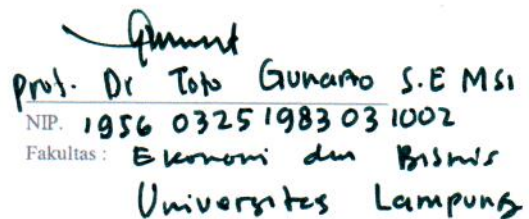 Prof. Dr Toto Gunarto S.E MSi
NIP. 1956 0325 1983 03 1002
Fakultas : Ekonomi dan Bisnis
Universitas Lampung